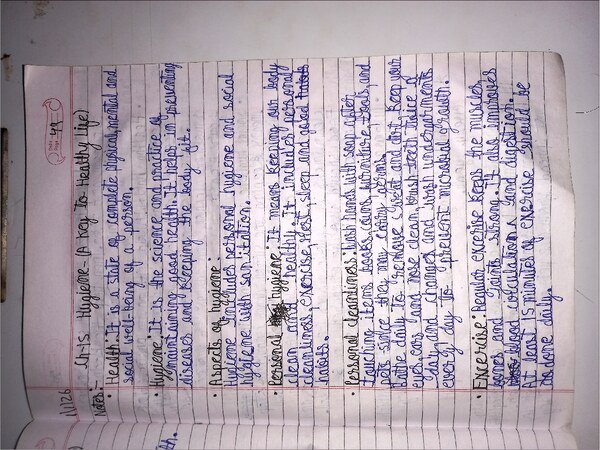 Date
Page 49
1/1/26
Notes:- Ch:5 Hygiene- (A Key To Healthy Life)
• Health: It is a state of complete physical, mental and
social well-being of a person.
• Hygiene: It is the science and practice of
maintaining good health. It helps in preventing
diseases and keeping the body fit.
• Aspects of hygiene:
Hygiene includes personal hygiene and social
hygiene with sanitation.
• Personal hygiene: It means keeping our body
clean and healthy. It includes personal
cleanliness, exercise, Rest, sleep and good
habits.
• Personal cleanliness: Wash hands with soap after
touching items books, coins, furniture, tools, and
pets since they may carry germs.
Bathe daily to remove sweat and dirt. Keep your
eyes, ears and nose clean, brush teeth twice a
day and changes and wash undergarments
every day to prevent microbial growth.
• Excercise: Regular excercise keeps the muscles
bones and joints strong. It also improves
blood circulation and digestion.
At least 15 minutes of exercise should be
done daily.
th.